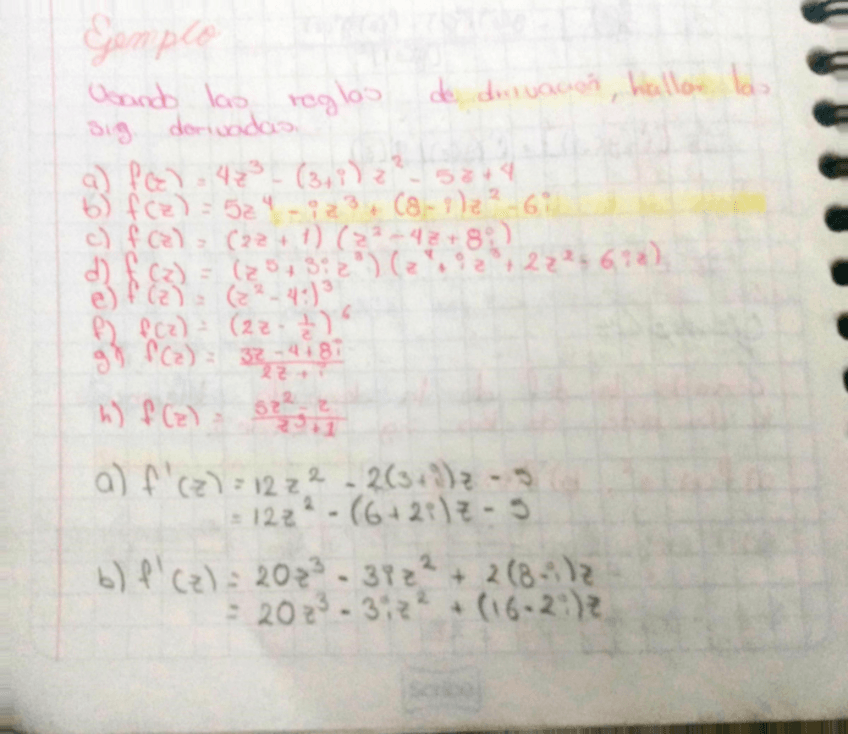 Ejemplo
Usando las reglas de derivación, hallar las
sig derivadas.
a) f(z) = 4z³ - (3+i)z² - 5z + 4
b) f(z) = 5z⁴ - iz³ + (8-i)z² - 6i
c) f(z) = (2z + 1) (z² - 4z + 8i)
d) f(z) = (z⁵ + 3iz³) (z⁴ + iz³ + 2z² - 6iz)
e) f(z) = (z² - 4i)³
f) f(z) = (2z - 1/z)⁶
g) f(z) = (3z - 4 + 8i)/(2z + i)
h) f(z) = (5z² - z)/(z³ + 1)
a) f'(z) = 12z² - 2(3+i)z - 5
= 12z² - (6+2i)z - 5
b) f'(z) = 20z³ - 3iz² + 2(8-i)z
= 20z³ - 3iz² + (16-2i)z
Scribe